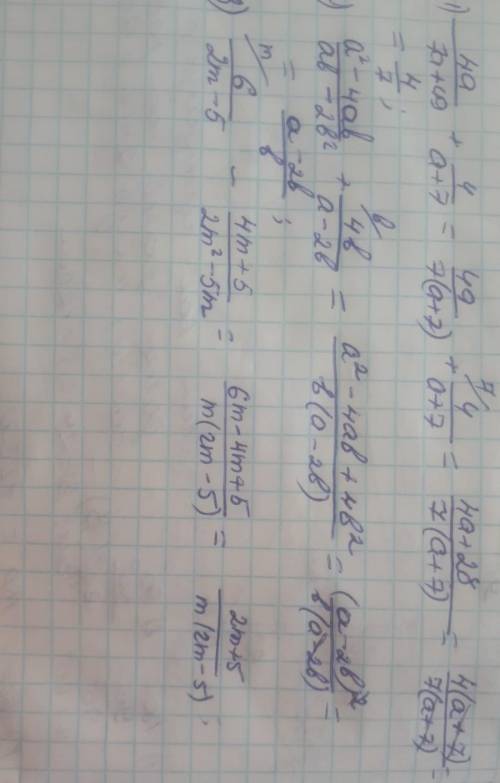 1) 4a/(7a+49) + 4/(a+7) = 4a/(7(a+7)) + 4/(a+7) ⁷⁄ = (4a+28)/(7(a+7)) = 4(a+7)/(7(a+7)) =
= 4/7;
) (a²-4ab)/(ab-2b²) + 4b/(a-2b) ᵇ⁄ = (a²-4ab+4b²)/(b(a-2b)) = (a-2b)²/(b(a-2b)) =
= (a-2b)/b;
) 6/(2m-5) ᵐ⁄ - (4m+5)/(2m²-5m) = (6m-4m+5)/(m(2m-5)) = (2m+5)/(m(2m-5)).